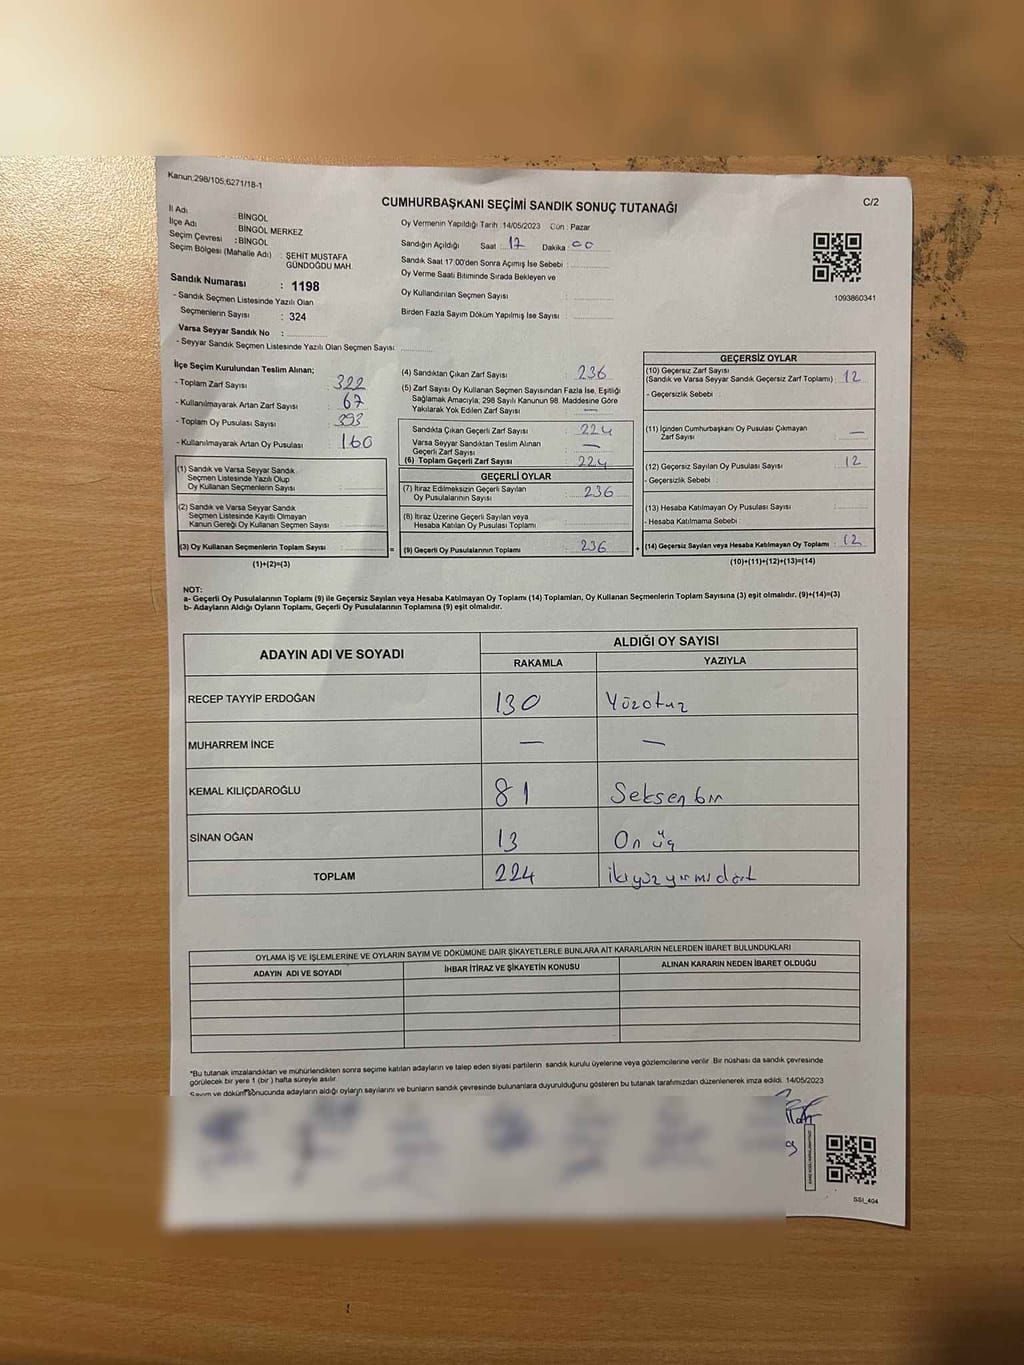 Kanun:298/105;6271/18-1
C/2
CUMHURBAŞKANI SEÇİMİ SANDIK SONUÇ TUTANAĞI
İl Adı : BİNGÖL
İlçe Adı : BİNGÖL MERKEZ
Seçim Çevresi : BİNGÖL
Seçim Bölgesi (Mahalle Adı) : ŞEHİT MUSTAFA
GÜNDOĞDU MAH.
Sandık Numarası : 1198
- Sandık Seçmen Listesinde Yazılı Olan
Seçmenlerin Sayısı : 324
Varsa Seyyar Sandık No :
- Seyyar Sandık Seçmen Listesinde Yazılı Olan Seçmen Sayısı:
Oy Vermenin Yapıldığı Tarih :14/05/2023 Gün : Pazar
Sandığın Açıldığı Saat : 17 Dakika : 00
Sandık Saat 17.00'den Sonra Açımış İse Sebebi :
Oy Verme Saati Bitiminde Sırada Bekleyen ve
Oy Kullandırılan Seçmen Sayısı :
Birden Fazla Sayım Döküm Yapılmış İse Sayısı :
1093860341
İlçe Seçim Kurulundan Teslim Alınan;
- Toplam Zarf Sayısı : 322
- Kullanılmayarak Artan Zarf Sayısı : 67
- Toplam Oy Pusulası Sayısı : 393
- Kullanılmayarak Artan Oy Pusulası : 160
(1) Sandık ve Varsa Seyyar Sandık
Seçmen Listesinde Yazılı Olup
Oy Kullanan Seçmenlerin Sayısı :
(2) Sandık ve Varsa Seyyar Sandık
Seçmen Listesinde Kayıtlı Olmayan
Kanun Gereği Oy Kullanan Seçmen Sayısı :
(3) Oy Kullanan Seçmenlerin Toplam Sayısı : =
(1)+(2)=(3)
(4) Sandıktan Çıkan Zarf Sayısı : 236
(5) Zarf Sayısı Oy Kullanan Seçmen Sayısından Fazla İse, Eşitliği
Sağlamak Amacıyla; 298 Sayılı Kanunun 98. Maddesine Göre
Yakılarak Yok Edilen Zarf Sayısı : —
Sandıkta Çıkan Geçerli Zarf Sayısı : 224
Varsa Seyyar Sandıktan Teslim Alınan
Geçerli Zarf Sayısı : —
(6) Toplam Geçerli Zarf Sayısı : 224
GEÇERLİ OYLAR
(7) İtiraz Edilmeksizin Geçerli Sayılan
Oy Pusulalarının Sayısı : 236
(8) İtiraz Üzerine Geçerli Sayılan veya
Hesaba Katılan Oy Pusulası Toplamı :
(9) Geçerli Oy Pusulalarının Toplamı : 236 +
GEÇERSİZ OYLAR
(10) Geçersiz Zarf Sayısı
(Sandık ve Varsa Seyyar Sandık Geçersiz Zarf Toplamı) : 12
- Geçersizlik Sebebi :
(11) İçinden Cumhurbaşkanı Oy Pusulası Çıkmayan
Zarf Sayısı : —
(12) Geçersiz Sayılan Oy Pusulası Sayısı : 12
- Geçersizlik Sebebi :
(13) Hesaba Katılmayan Oy Pusulası Sayısı :
- Hesaba Katılmama Sebebi :
(14) Geçersiz Sayılan veya Hesaba Katılmayan Oy Toplamı : 12
(10)+(11)+(12)+(13)=(14)
NOT:
a- Geçerli Oy Pusulalarının Toplamı (9) ile Geçersiz Sayılan veya Hesaba Katılmayan Oy Toplamı (14) Toplamları, Oy Kullanan Seçmenlerin Toplam Sayısına (3) eşit olmalıdır. (9)+(14)=(3)
b- Adayların Aldığı Oyların Toplamı, Geçerli Oy Pusulalarının Toplamına (9) eşit olmalıdır.
ADAYIN ADI VE SOYADI ALDIĞI OY SAYISI
RAKAMLA YAZIYLA
RECEP TAYYİP ERDOĞAN 130 Yüzotuz
MUHARREM İNCE — —
KEMAL KILIÇDAROĞLU 81 Seksen bir
SİNAN OĞAN 13 On üç
TOPLAM 224 ikiyüzyirmidört
OYLAMA İŞ VE İŞLEMLERİNE VE OYLARIN SAYIM VE DÖKÜMÜNE DAİR ŞİKAYETLERLE BUNLARA AİT KARARLARIN NELERDEN İBARET BULUNDUKLARI
ADAYIN ADI VE SOYADI İHBAR İTİRAZ VE ŞİKAYETİN KONUSU ALINAN KARARIN NEDEN İBARET OLDUĞU
*Bu tutanak imzalandıktan ve mühürlendikten sonra seçime katılan adayların ve talep eden siyasi partilerin sandık kurulu üyelerine veya gözlemcilerine verilir. Bir nüshası da sandık çevresinde
görülecek bir yere 1 (bir ) hafta süreyle asılır.
Sayım ve döküm sonucunda adayların aldığı oyların sayılarını ve bunların sandık çevresinde bulunanlara duyurulduğunu gösteren bu tutanak tarafımızdan düzenlenerek imza edildi. 14/05/2023
SSI_404